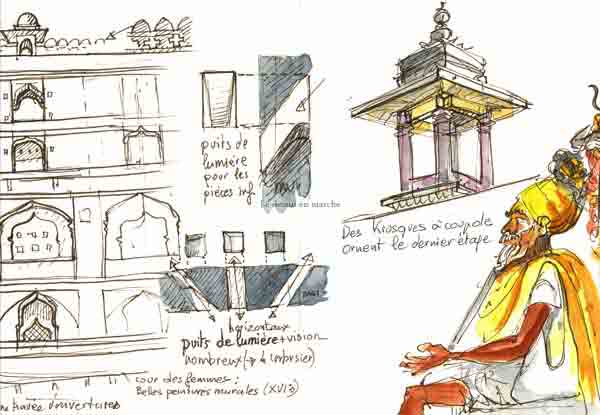 puits de
lumière
pour les
pièces inf.
mur
Le dessin en marche
horizontaux
puits de lumière + vision
nombreux (→ le corbusier)
cour des femmes :
Belles peintures murales (XVIè)
travée d'ouvertures
Des Kiosques à coupole
ornent le dernier étage